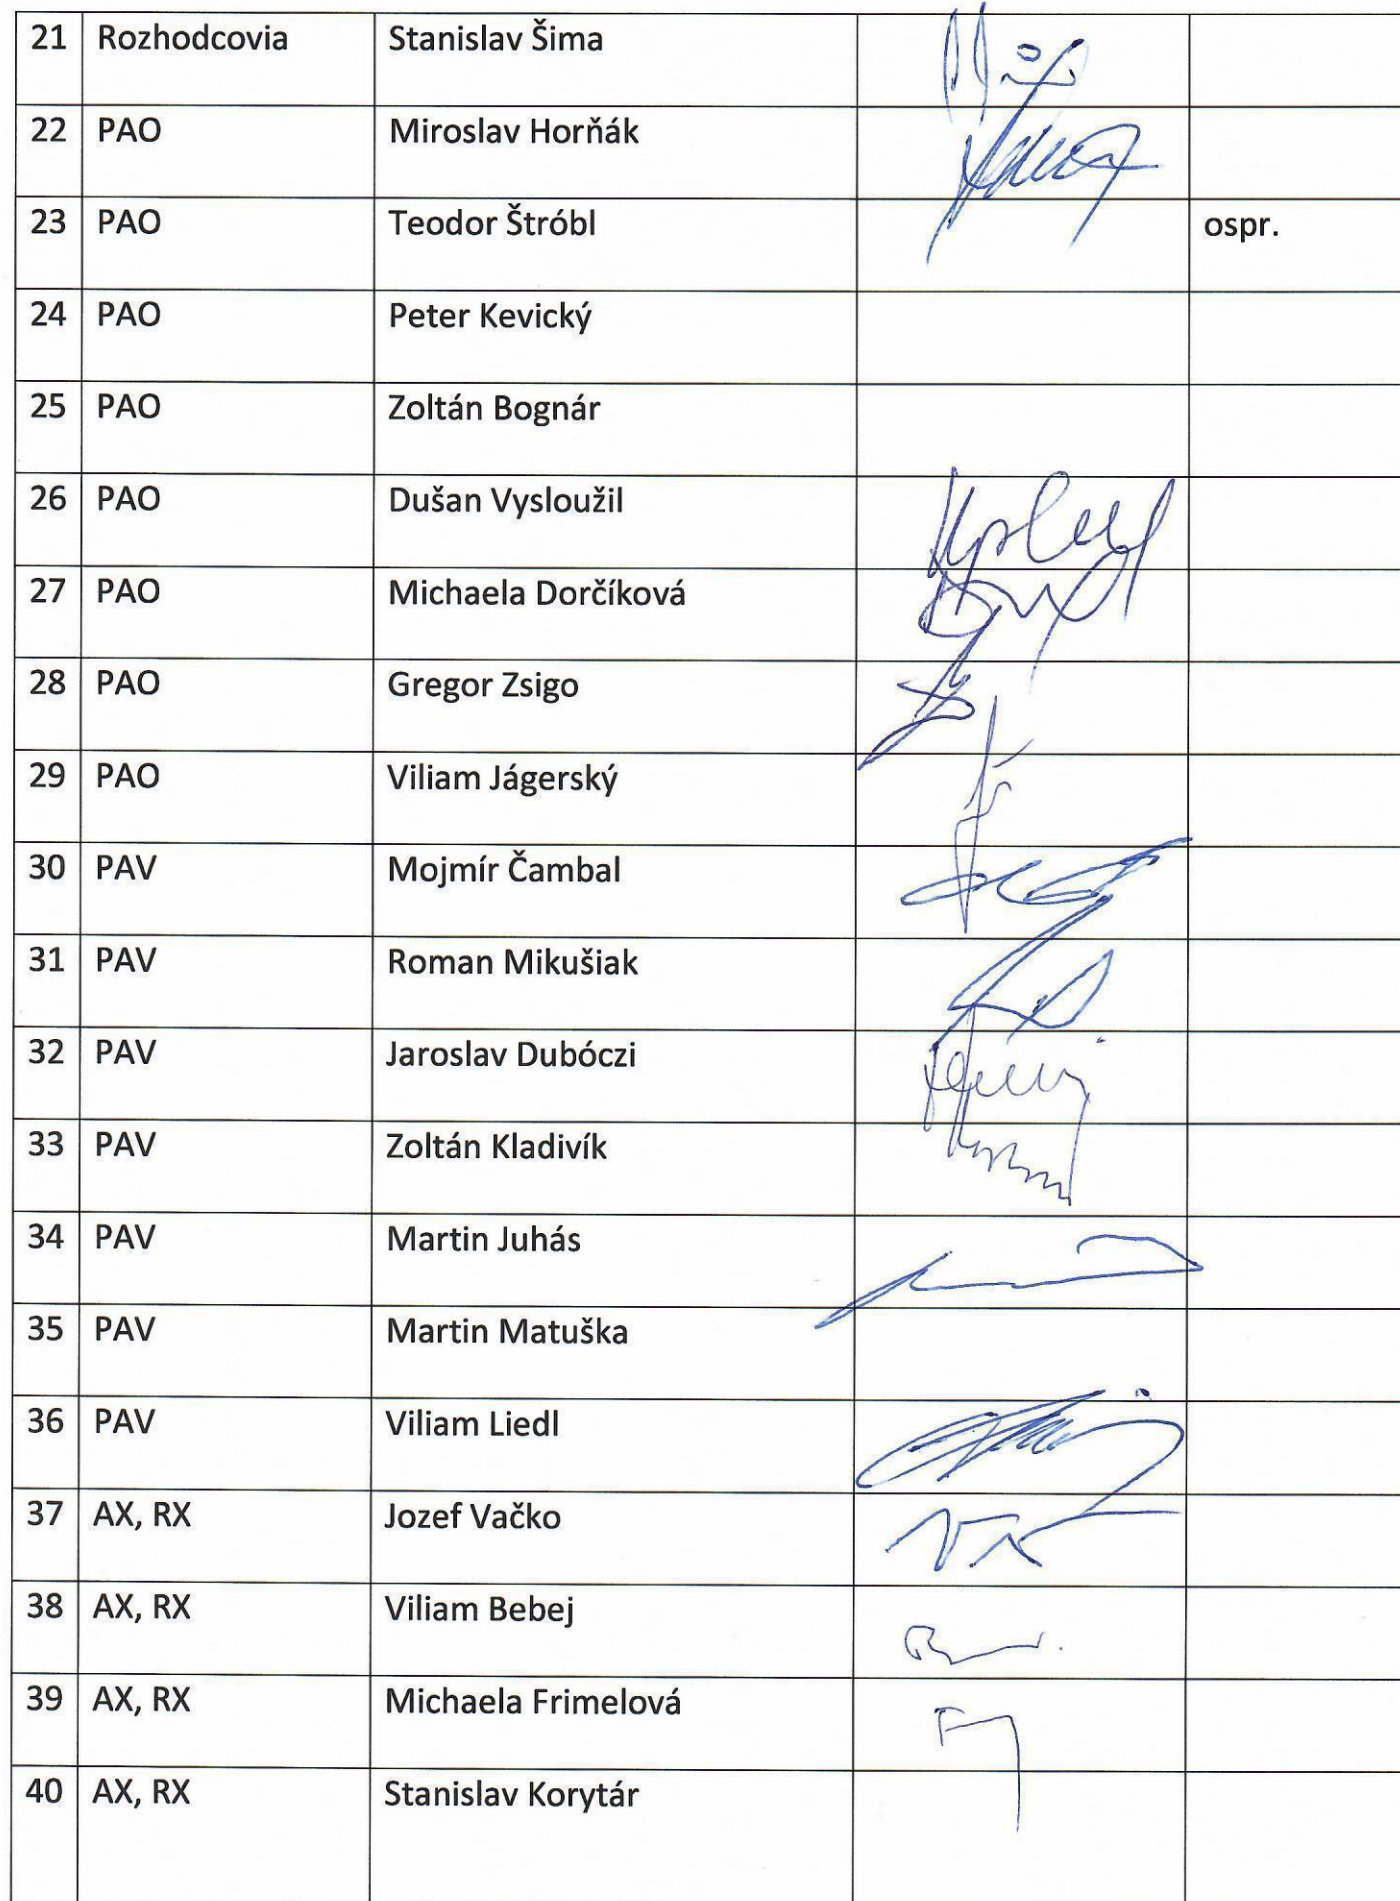 21 Rozhodcovia Stanislav Šima
22 PAO Miroslav Horňák
23 PAO Teodor Štróbl ospr.
24 PAO Peter Kevický
25 PAO Zoltán Bognár
26 PAO Dušan Vysloužil
27 PAO Michaela Dorčíková
28 PAO Gregor Zsigo
29 PAO Viliam Jágerský
30 PAV Mojmír Čambal
31 PAV Roman Mikušiak
32 PAV Jaroslav Dubóczi
33 PAV Zoltán Kladivík
34 PAV Martin Juhás
35 PAV Martin Matuška
36 PAV Viliam Liedl
37 AX, RX Jozef Vačko
38 AX, RX Viliam Bebej
39 AX, RX Michaela Frimelová
40 AX, RX Stanislav Korytár